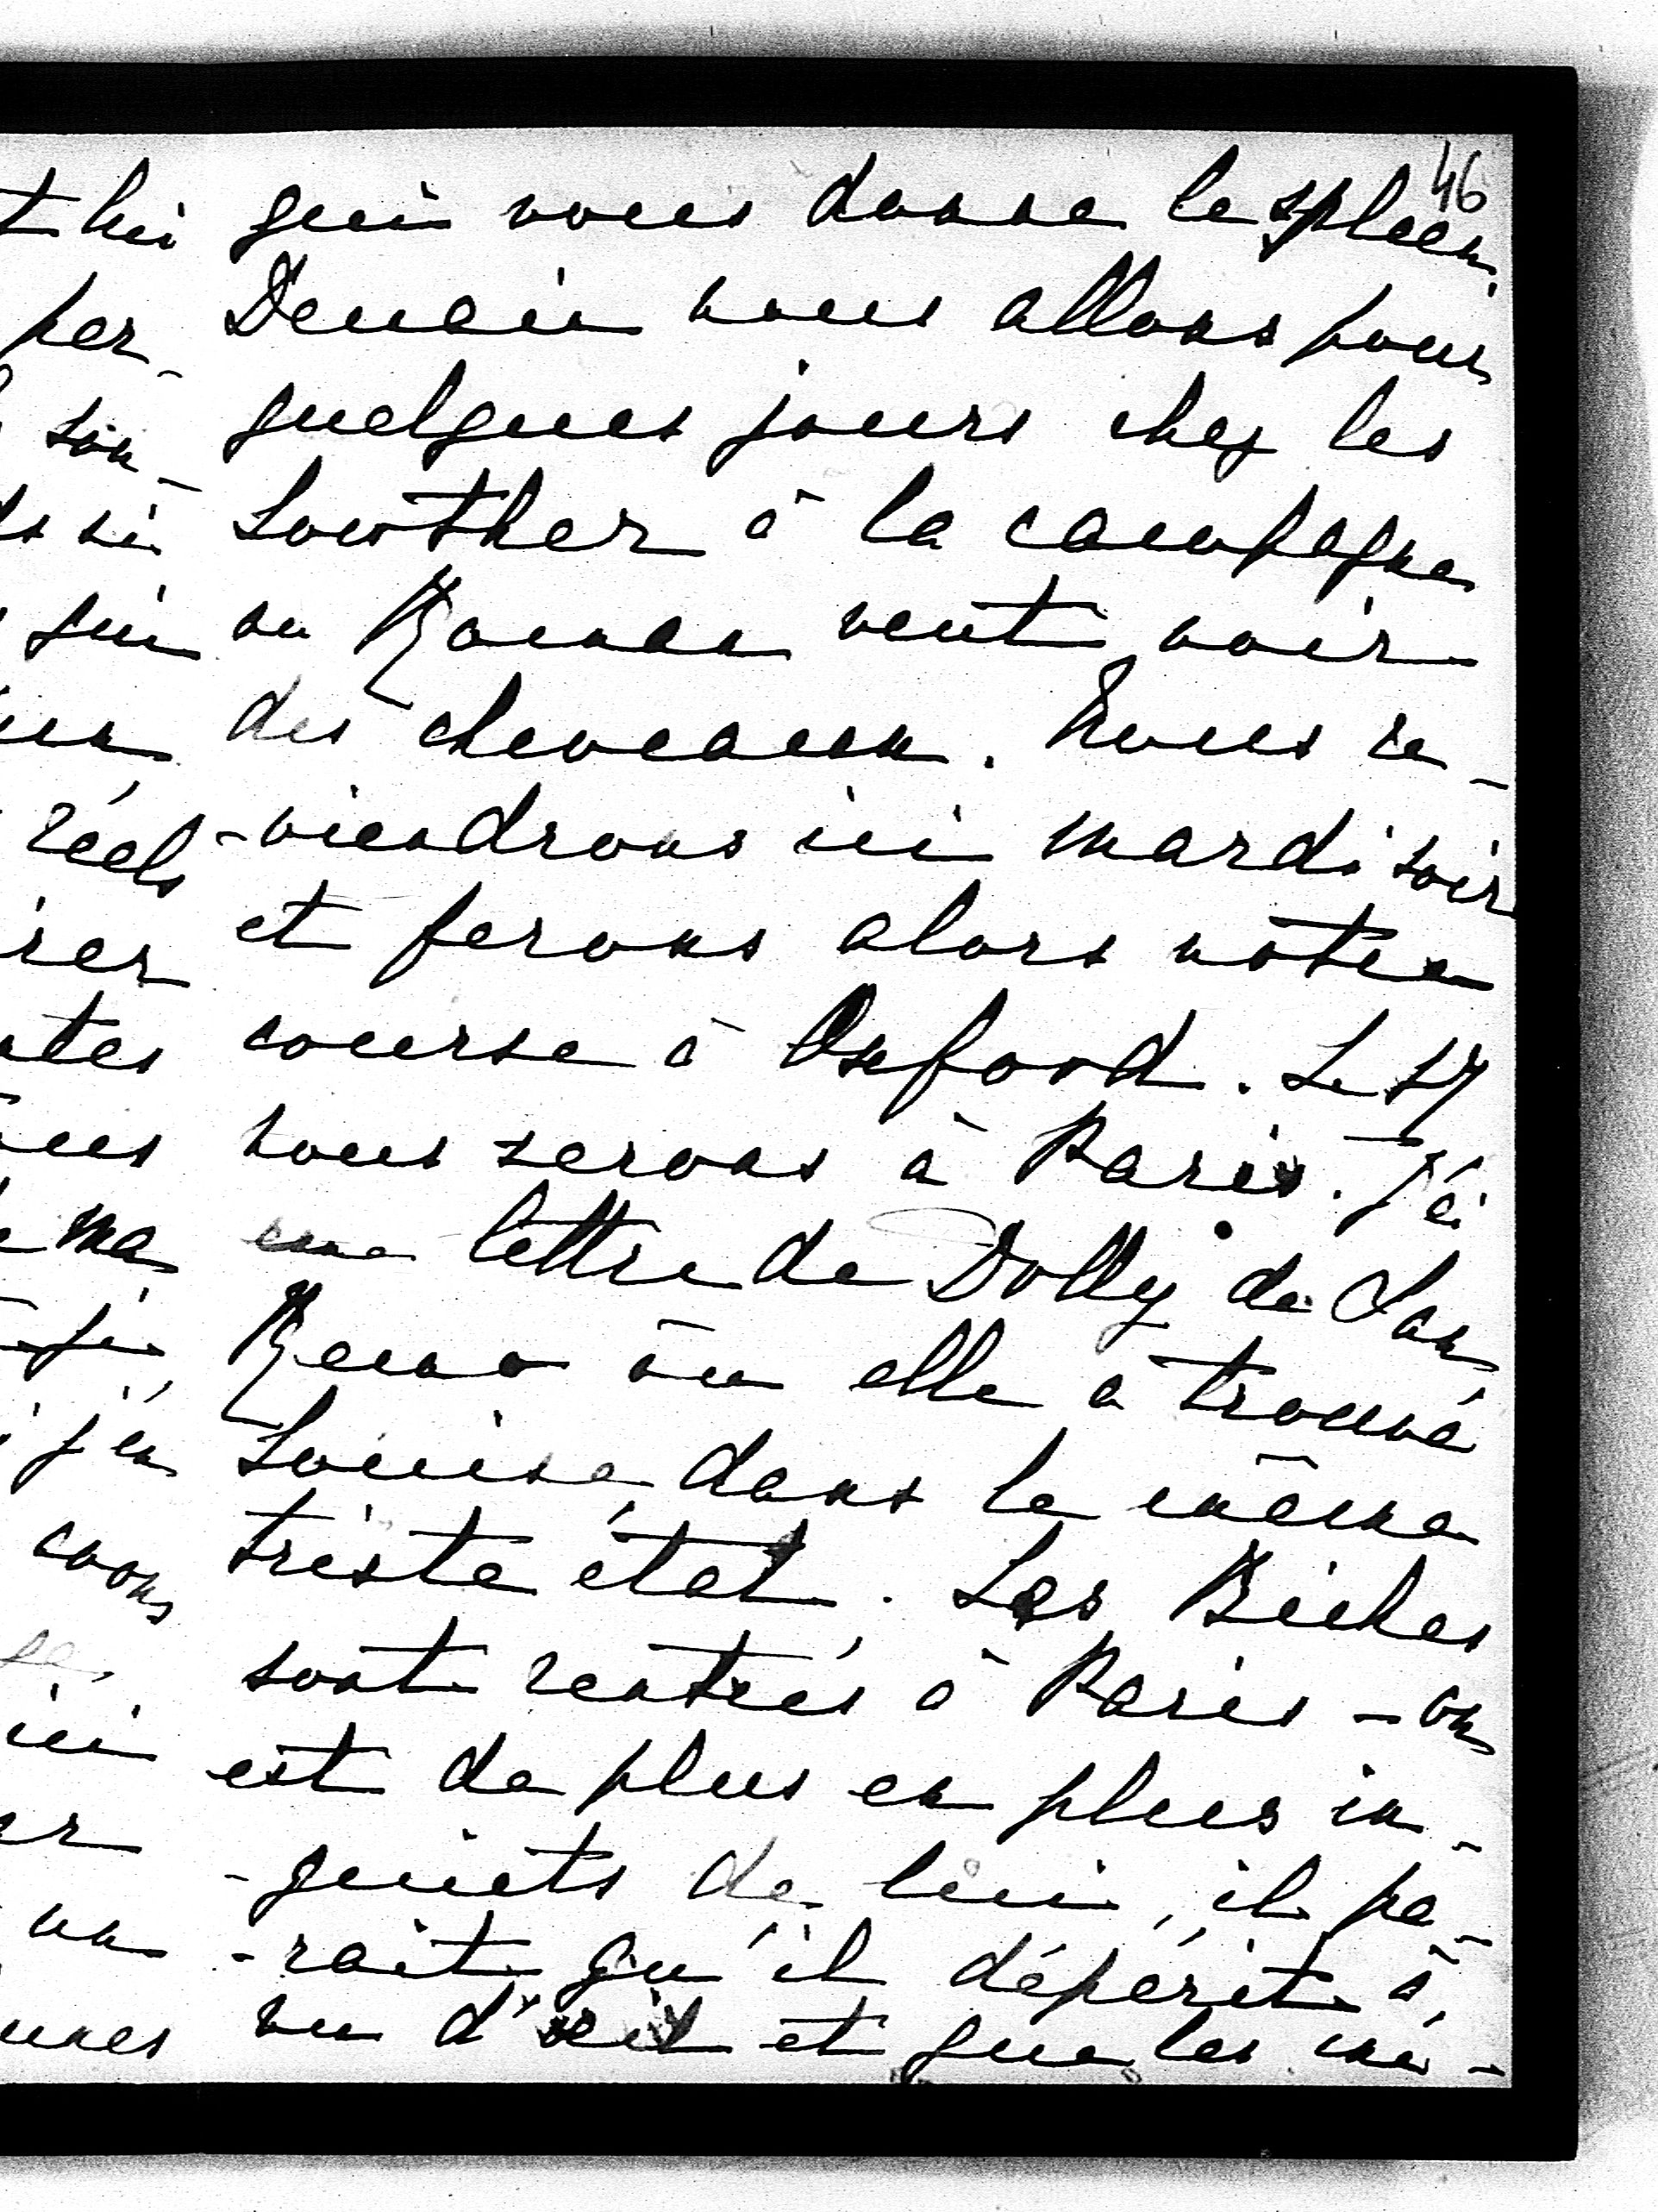 46
qui vous donne le spleen.
Demain nous allons pour
quelques jours chez les
Lowther à la campagne
ou Roman veut voir
des cheveaux. Nous re-
-viendrons ici mardi soir
et ferons alors nôtre
course à Oxford. Le 17
nous serons à Paris. J'ai
une lettre de Dolly de San
Remo ôu elle a trouvé
Louise dans le même
triste état. Les Biches
sont rentrés à Paris - on
est de plus en plus in-
-quiets de lui, il pa-
-rait qu'il dépérit à
vu d'œil et que les mé-
t lui
per-
son-
qui
réels
rer
ma
j'en
ici